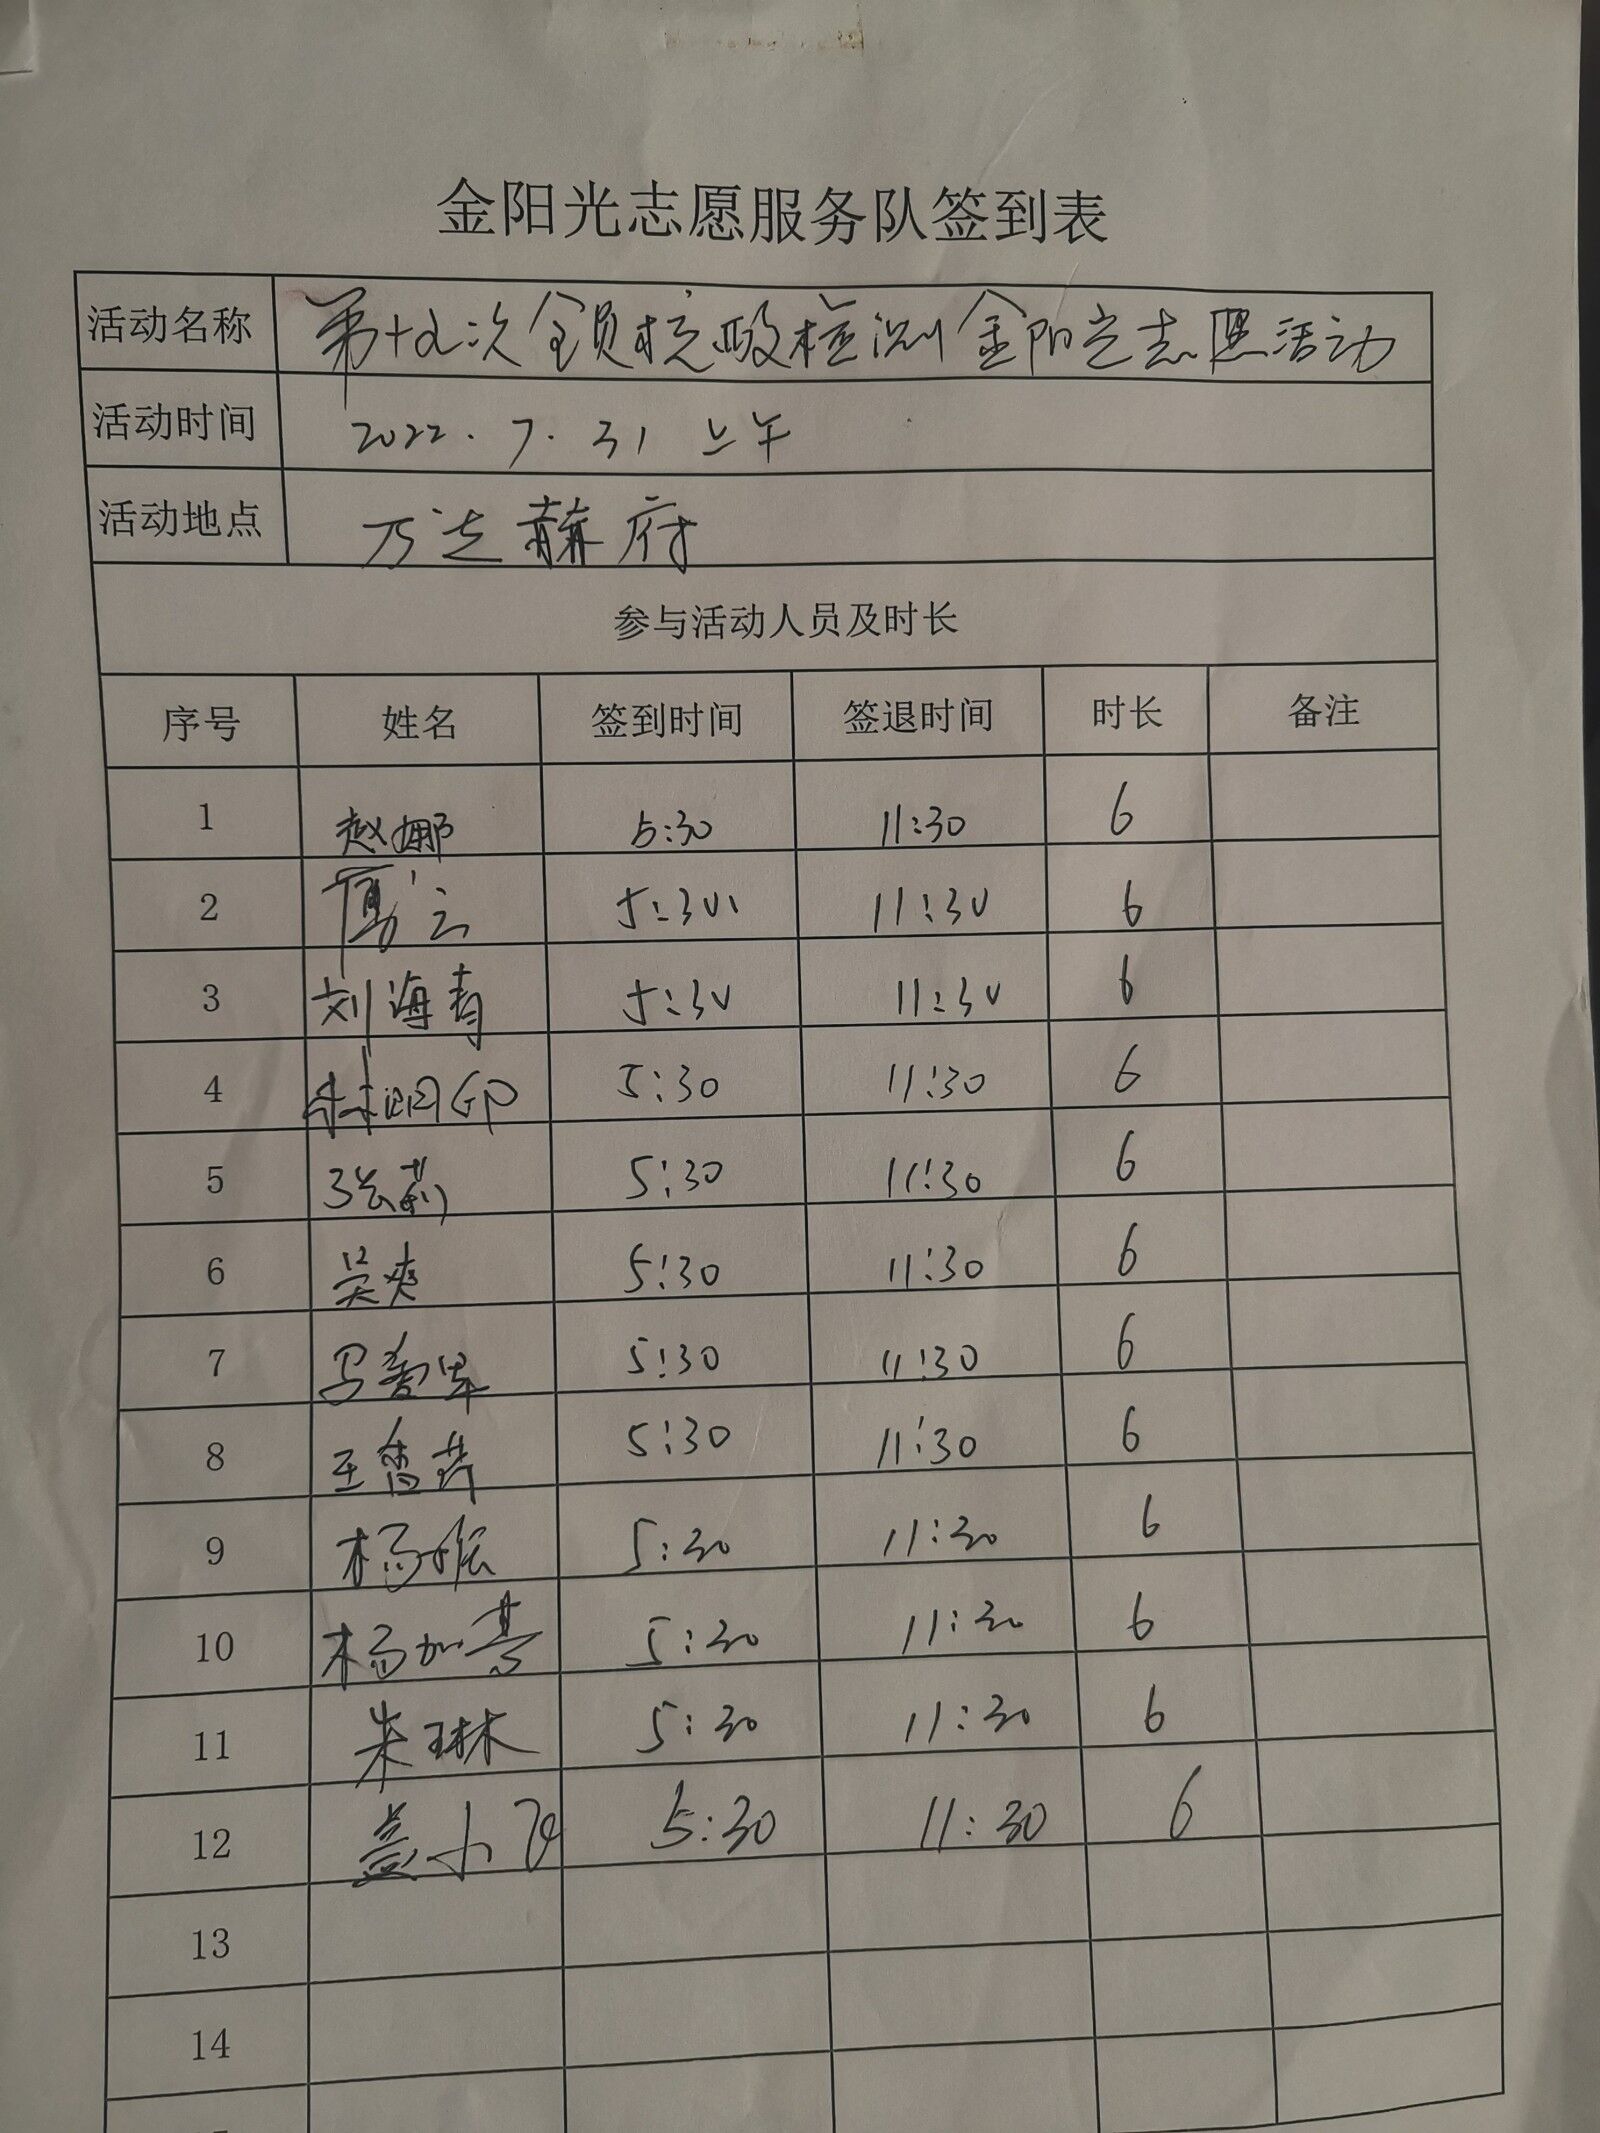 金阳光志愿服务队签到表
活动名称 第十九次全员核酸检测金阳光志愿活动
活动时间 2022.7.31 上午
活动地点 万达赫府
参与活动人员及时长
序号 姓名 签到时间 签退时间 时长 备注
1 赵娜 5:30 11:30 6
2 5:30 11:30 6
3 刘海青 5:30 11:30 6
4 5:30 11:30 6
5 张莉 5:30 11:30 6
6 吴爽 5:30 11:30 6
7 5:30 11:30 6
8 5:30 11:30 6
9 5:30 11:30 6
10 5:30 11:30 6
11 朱琳 5:30 11:30 6
12 5:30 11:30 6
13
14